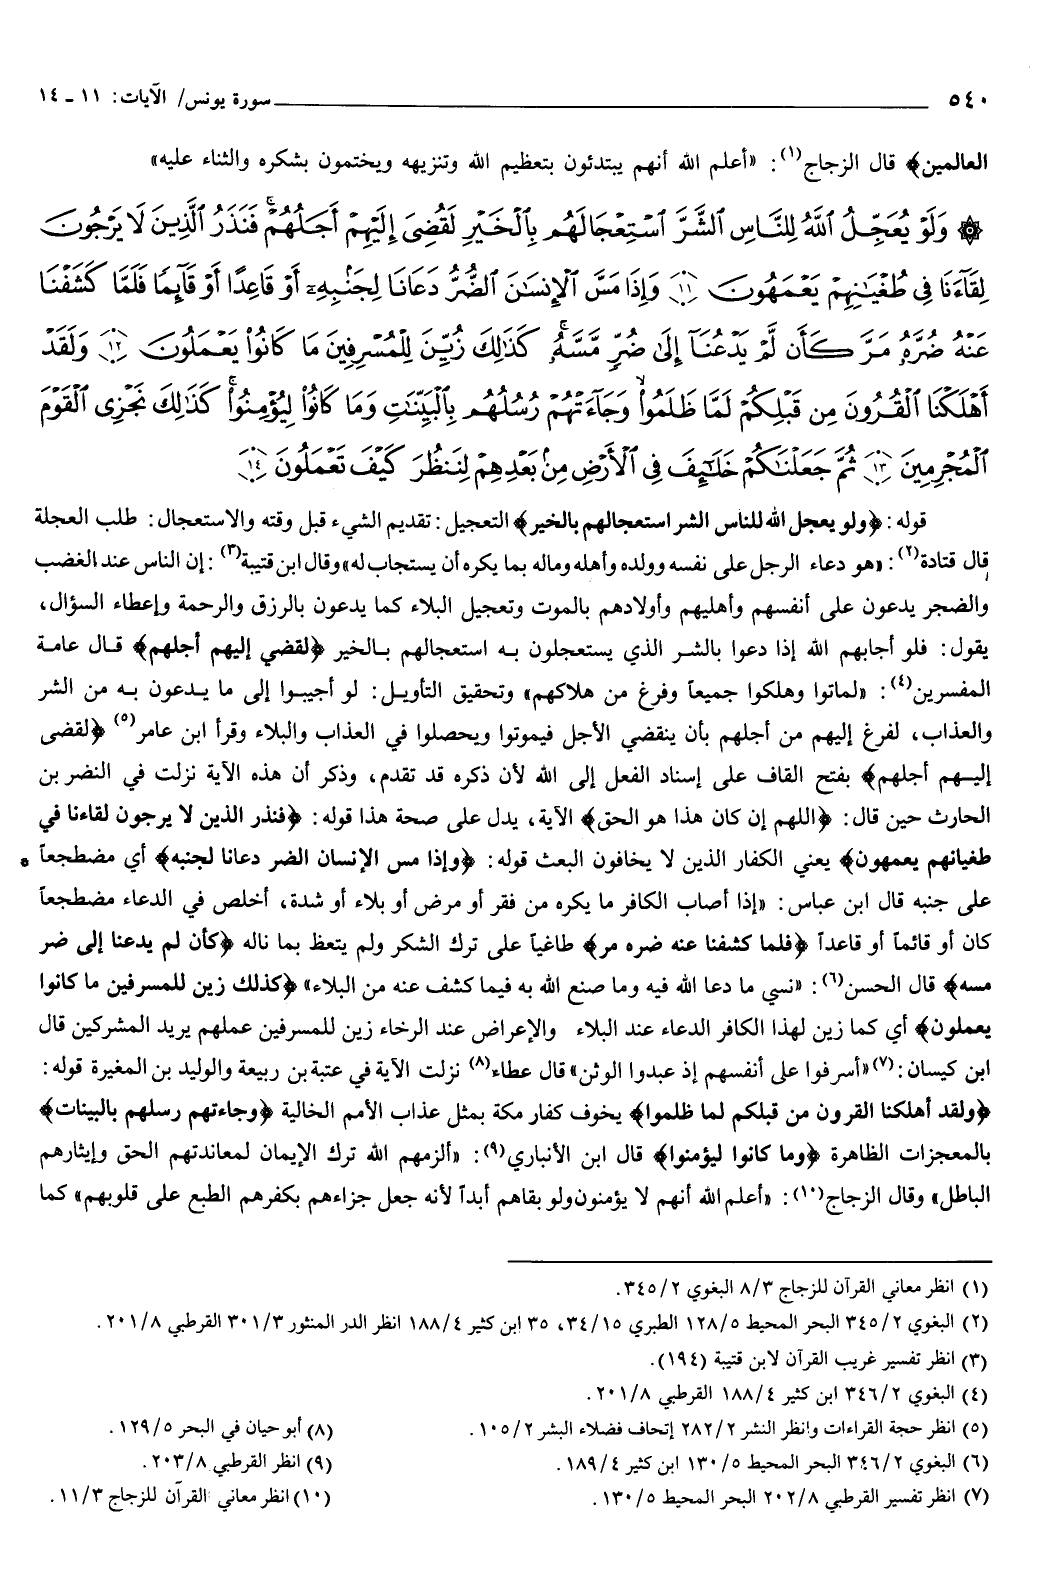 ٥٤٠ سورة يونس/ الآيات: ١١ ـ ١٤
العالمين﴾ قال الزجاج(١): «أعلم الله أنهم يبتدئون بتعظيم الله وتنزيهه ويختمون بشكره والثناء عليه»
۞ وَلَوْ يُعَجِّلُ ٱللَّهُ لِلنَّاسِ ٱلشَّرَّ ٱسْتِعْجَالَهُم بِٱلْخَيْرِ لَقُضِىَ إِلَيْهِمْ أَجَلُهُمْ ۖ فَنَذَرُ ٱلَّذِينَ لَا يَرْجُونَ
لِقَآءَنَا فِى طُغْيَـٰنِهِمْ يَعْمَهُونَ ١١ وَإِذَا مَسَّ ٱلْإِنسَـٰنَ ٱلضُّرُّ دَعَانَا لِجَنۢبِهِۦٓ أَوْ قَاعِدًا أَوْ قَآئِمًا فَلَمَّا كَشَفْنَا
عَنْهُ ضُرَّهُۥ مَرَّ كَأَن لَّمْ يَدْعُنَآ إِلَىٰ ضُرٍّ مَّسَّهُۥ ۚ كَذَٰلِكَ زُيِّنَ لِلْمُسْرِفِينَ مَا كَانُوا۟ يَعْمَلُونَ ١٢ وَلَقَدْ
أَهْلَكْنَا ٱلْقُرُونَ مِن قَبْلِكُمْ لَمَّا ظَلَمُوا۟ ۙ وَجَآءَتْهُمْ رُسُلُهُم بِٱلْبَيِّنَـٰتِ وَمَا كَانُوا۟ لِيُؤْمِنُوا۟ ۚ كَذَٰلِكَ نَجْزِى ٱلْقَوْمَ
ٱلْمُجْرِمِينَ ١٣ ثُمَّ جَعَلْنَـٰكُمْ خَلَـٰٓئِفَ فِى ٱلْأَرْضِ مِنۢ بَعْدِهِمْ لِنَنظُرَ كَيْفَ تَعْمَلُونَ ١٤
قوله: ﴿ولو يعجل الله للناس الشر استعجالهم بالخير﴾ التعجيل: تقديم الشيء قبل وقته والاستعجال: طلب العجلة
قال قتادة(٢): «هو دعاء الرجل على نفسه وولده وأهله وماله بما يكره أن يستجاب له» وقال ابن قتيبة(٣): إن الناس عند الغضب
والضجر يدعون على أنفسهم وأهليهم وأولادهم بالموت وتعجيل البلاء كما يدعون بالرزق والرحمة وإعطاء السؤال،
يقول: فلو أجابهم الله إذا دعوا بالشر الذي يستعجلون به استعجالهم بالخير ﴿لقضي إليهم أجلهم﴾ قال عامة
المفسرين(٤): «لماتوا وهلكوا جميعاً وفرغ من هلاكهم» وتحقيق التأويل: لو أجيبوا إلى ما يدعون به من الشر
والعذاب، لفرغ إليهم من أجلهم بأن ينقضي الأجل فيموتوا ويحصلوا في العذاب والبلاء وقرأ ابن عامر(٥) ﴿لقضى
إليهم أجلهم﴾ بفتح القاف على إسناد الفعل إلى الله لأن ذكره قد تقدم، وذكر أن هذه الآية نزلت في النضر بن
الحارث حين قال: ﴿اللهم إن كان هذا هو الحق﴾ الآية، يدل على صحة هذا قوله: ﴿فنذر الذين لا يرجون لقاءنا في
طغيانهم يعمهون﴾ يعني الكفار الذين لا يخافون البعث قوله: ﴿وإذا مس الإنسان الضر دعانا لجنبه﴾ أي مضطجعاً *
على جنبه قال ابن عباس: «إذا أصاب الكافر ما يكره من فقر أو مرض أو بلاء أو شدة، أخلص في الدعاء مضطجعاً
كان أو قائماً أو قاعداً ﴿فلما كشفنا عنه ضره مر﴾ طاغياً على ترك الشكر ولم يتعظ بما ناله ﴿كأن لم يدعنا إلى ضر
مسه﴾ قال الحسن(٦): «نسي ما دعا الله فيه وما صنع الله به فيما كشف عنه من البلاء» ﴿كذلك زين للمسرفين ما كانوا
يعملون﴾ أي كما زين لهذا الكافر الدعاء عند البلاء والإعراض عند الرخاء زين للمسرفين عملهم يريد المشركين قال
ابن كيسان: (٧)«أسرفوا على أنفسهم إذ عبدوا الوثن» قال عطاء(٨) نزلت الآية في عتبة بن ربيعة والوليد بن المغيرة قوله:
﴿ولقد أهلكنا القرون من قبلكم لما ظلموا﴾ يخوف كفار مكة بمثل عذاب الأمم الخالية ﴿وجاءتهم رسلهم بالبينات﴾
بالمعجزات الظاهرة ﴿وما كانوا ليؤمنوا﴾ قال ابن الأنباري(٩): «ألزمهم الله ترك الإيمان لمعاندتهم الحق وإيثارهم
الباطل» وقال الزجاج(١٠): «أعلم الله أنهم لا يؤمنون ولو بقاهم أبداً لأنه جعل جزاءهم بكفرهم الطبع على قلوبهم» كما
(١) انظر معاني القرآن للزجاج ٨/٣ البغوي ٣٤٥/٢.
(٢) البغوي ٣٤٥/٢ البحر المحيط ١٢٨/٥ الطبري ٣٤/١٥، ٣٥ ابن كثير ١٨٨/٤ انظر الدر المنثور ٣٠١/٣ القرطبي ٢٠١/٨.
(٣) انظر تفسير غريب القرآن لابن قتيبة (١٩٤).
(٤) البغوي ٣٤٦/٢ ابن كثير ١٨٨/٤ القرطبي ٢٠١/٨.
(٥) انظر حجة القراءات وانظر النشر ٢٨٢/٢ إتحاف فضلاء البشر ١٠٥/٢.
(٦) البغوي ٣٤٦/٢ البحر المحيط ١٣٠/٥ ابن كثير ١٨٩/٤.
(٧) انظر تفسير القرطبي ٢٠٢/٨ البحر المحيط ١٣٠/٥.
(٨) أبو حيان في البحر ١٢٩/٥.
(٩) انظر القرطبي ٢٠٣/٨.
(١٠) انظر معاني القرآن للزجاج ١١/٣.